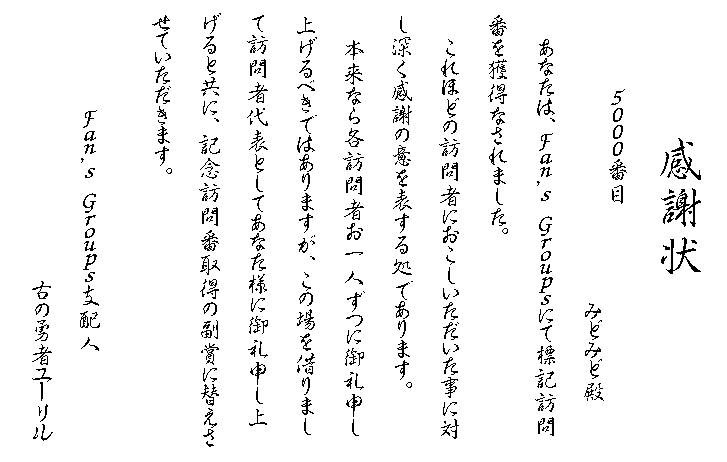 感謝状
5000番目
みどみど殿
あなたは、Fan's Groupsにて標記訪問
番を獲得なされました。
これほどの訪問者におこしいただいた事に対
し深く感謝の意を表する処であります。
本来なら各訪問者お一人ずつに御礼申し
上げるべきではありますが、この場を借りまし
て訪問者代表としてあなた様に御礼申し上
げると共に、記念訪問番取得の副賞に替えさ
せていただきます。
Fan's Groups支配人
古の勇者ユーリル